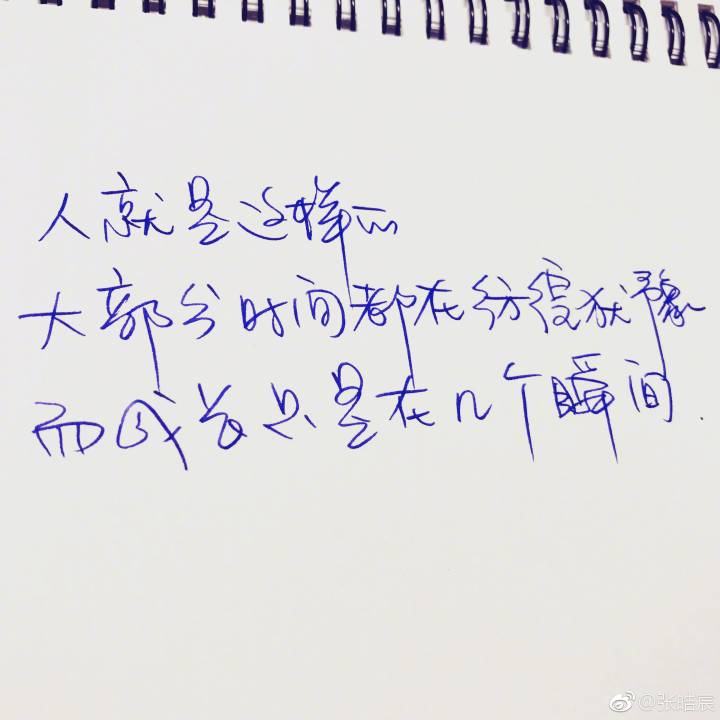 人就是这样的
大部分时间都在纷扰犹豫
而成长只是在几个瞬间.
@张皓辰